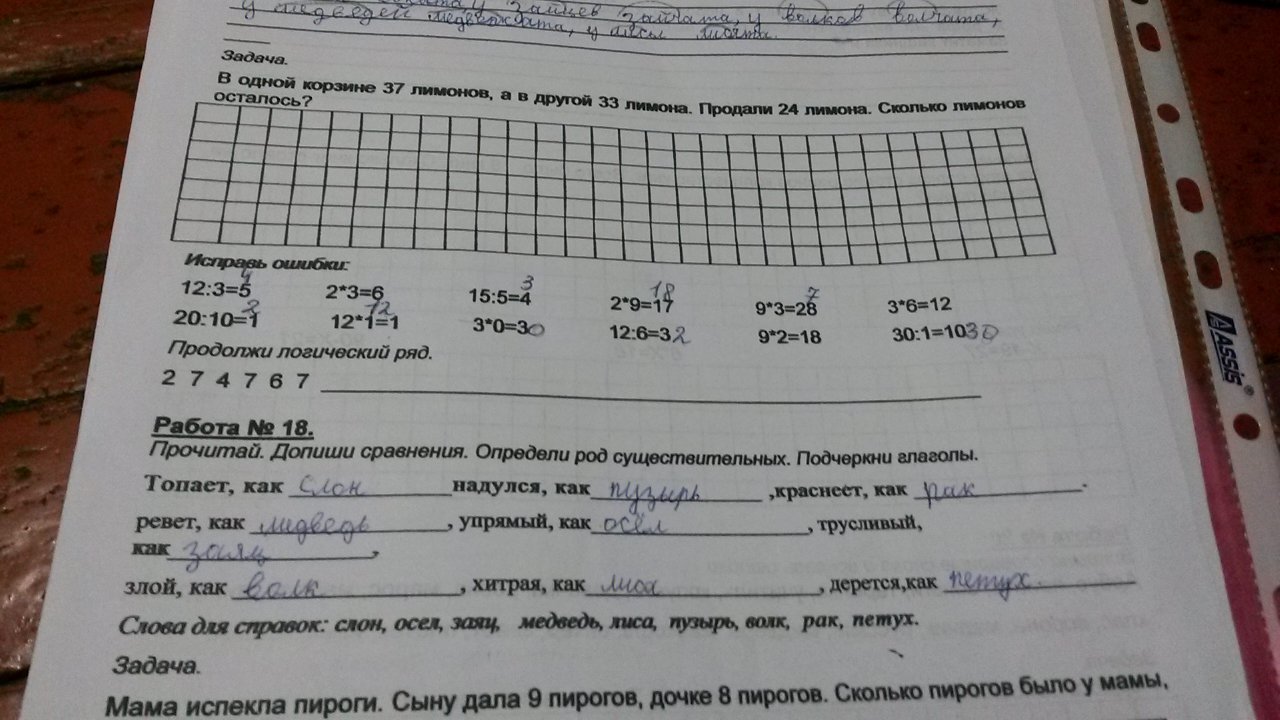 у зайцев зайчата, у волков волчата,
у медведей медвежата, у лисы лисята.
Задача.
В одной корзине 37 лимонов, а в другой 33 лимона. Продали 24 лимона. Сколько лимонов
осталось?
Исправь ошибки:
12:3=5 4 2*3=6 15:5=4 3 2*9=17 18 9*3=28 7 3*6=12
20:10=1 2 12*1=1 12 3*0=3 0 12:6=3 2 9*2=18 30:1=10 30
Продолжи логический ряд.
2 7 4 7 6 7
Работа № 18.
Прочитай. Допиши сравнения. Определи род существительных. Подчеркни глаголы.
Топает, как слон надулся, как пузырь ,краснеет, как рак.
ревет, как медведь, упрямый, как осёл, трусливый,
как заяц,
злой, как волк, хитрая, как лиса, дерется,как петух.
Слова для справок: слон, осел, заяц, медведь, лиса, пузырь, волк, рак, петух.
Задача.
Мама испекла пироги. Сыну дала 9 пирогов, дочке 8 пирогов. Сколько пирогов было у мамы,
Assis®